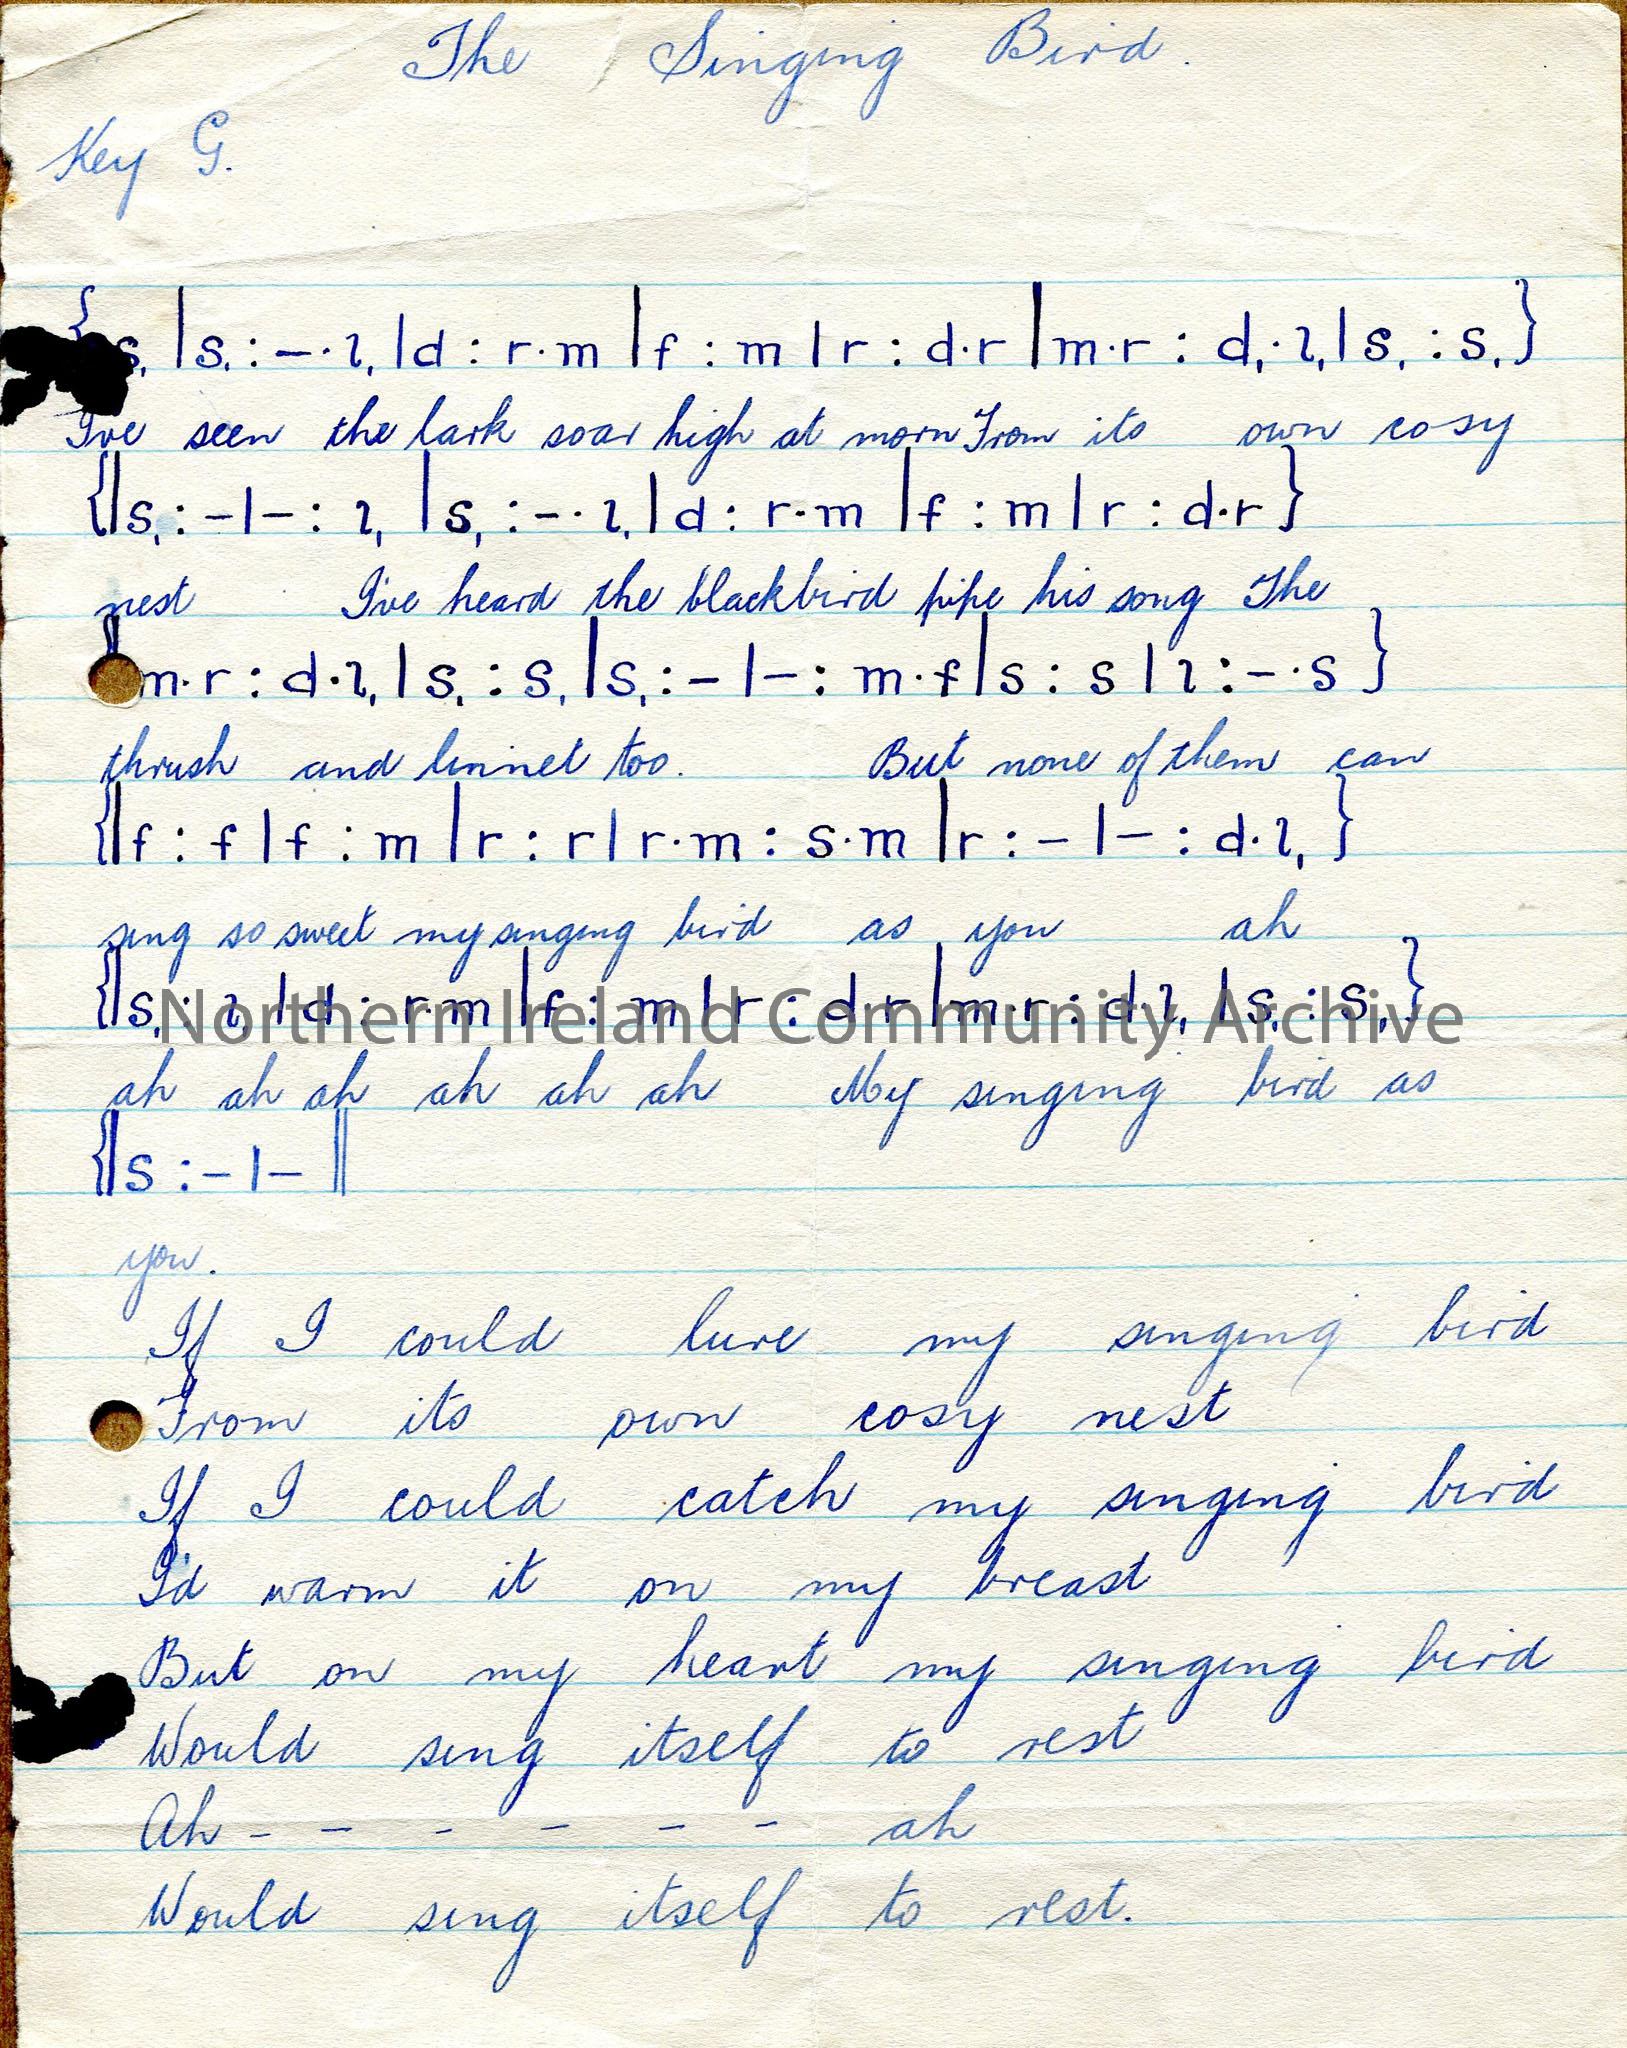 The Singing Bird.
Key G.
{ s, |s, : – · l, |d : r · m |f : m |r : d · r |m · r : d, · l, |s, : s, }
I've seen the lark soar high at morn From its own cosy
{|s, : – |– : l, |s, : – · l, |d : r · m |f : m |r : d · r }
nest I've heard the blackbird pipe his song The
m · r : d · l, |s, : s, |s, : – |– : m · f |s : s |l : – · s }
thrush and linnet too. But none of them can
{|f : f |f : m |r : r |r · m : s · m |r : – |– : d · l, }
sing so sweet my singing bird as you ah
{|s, : l, |d : r · m |f : m |r : d · r |m · r : d · l, |s, : s, }
Northern Ireland Community Archive
ah ah ah ah ah ah My singing bird as
{|s : – |– ||
you.
If I could lure my singing bird
From its own cosy nest
If I could catch my singing bird
I'd warm it on my breast
But on my heart my singing bird
Would sing itself to rest
Ah – – – – – – ah
Would sing itself to rest.